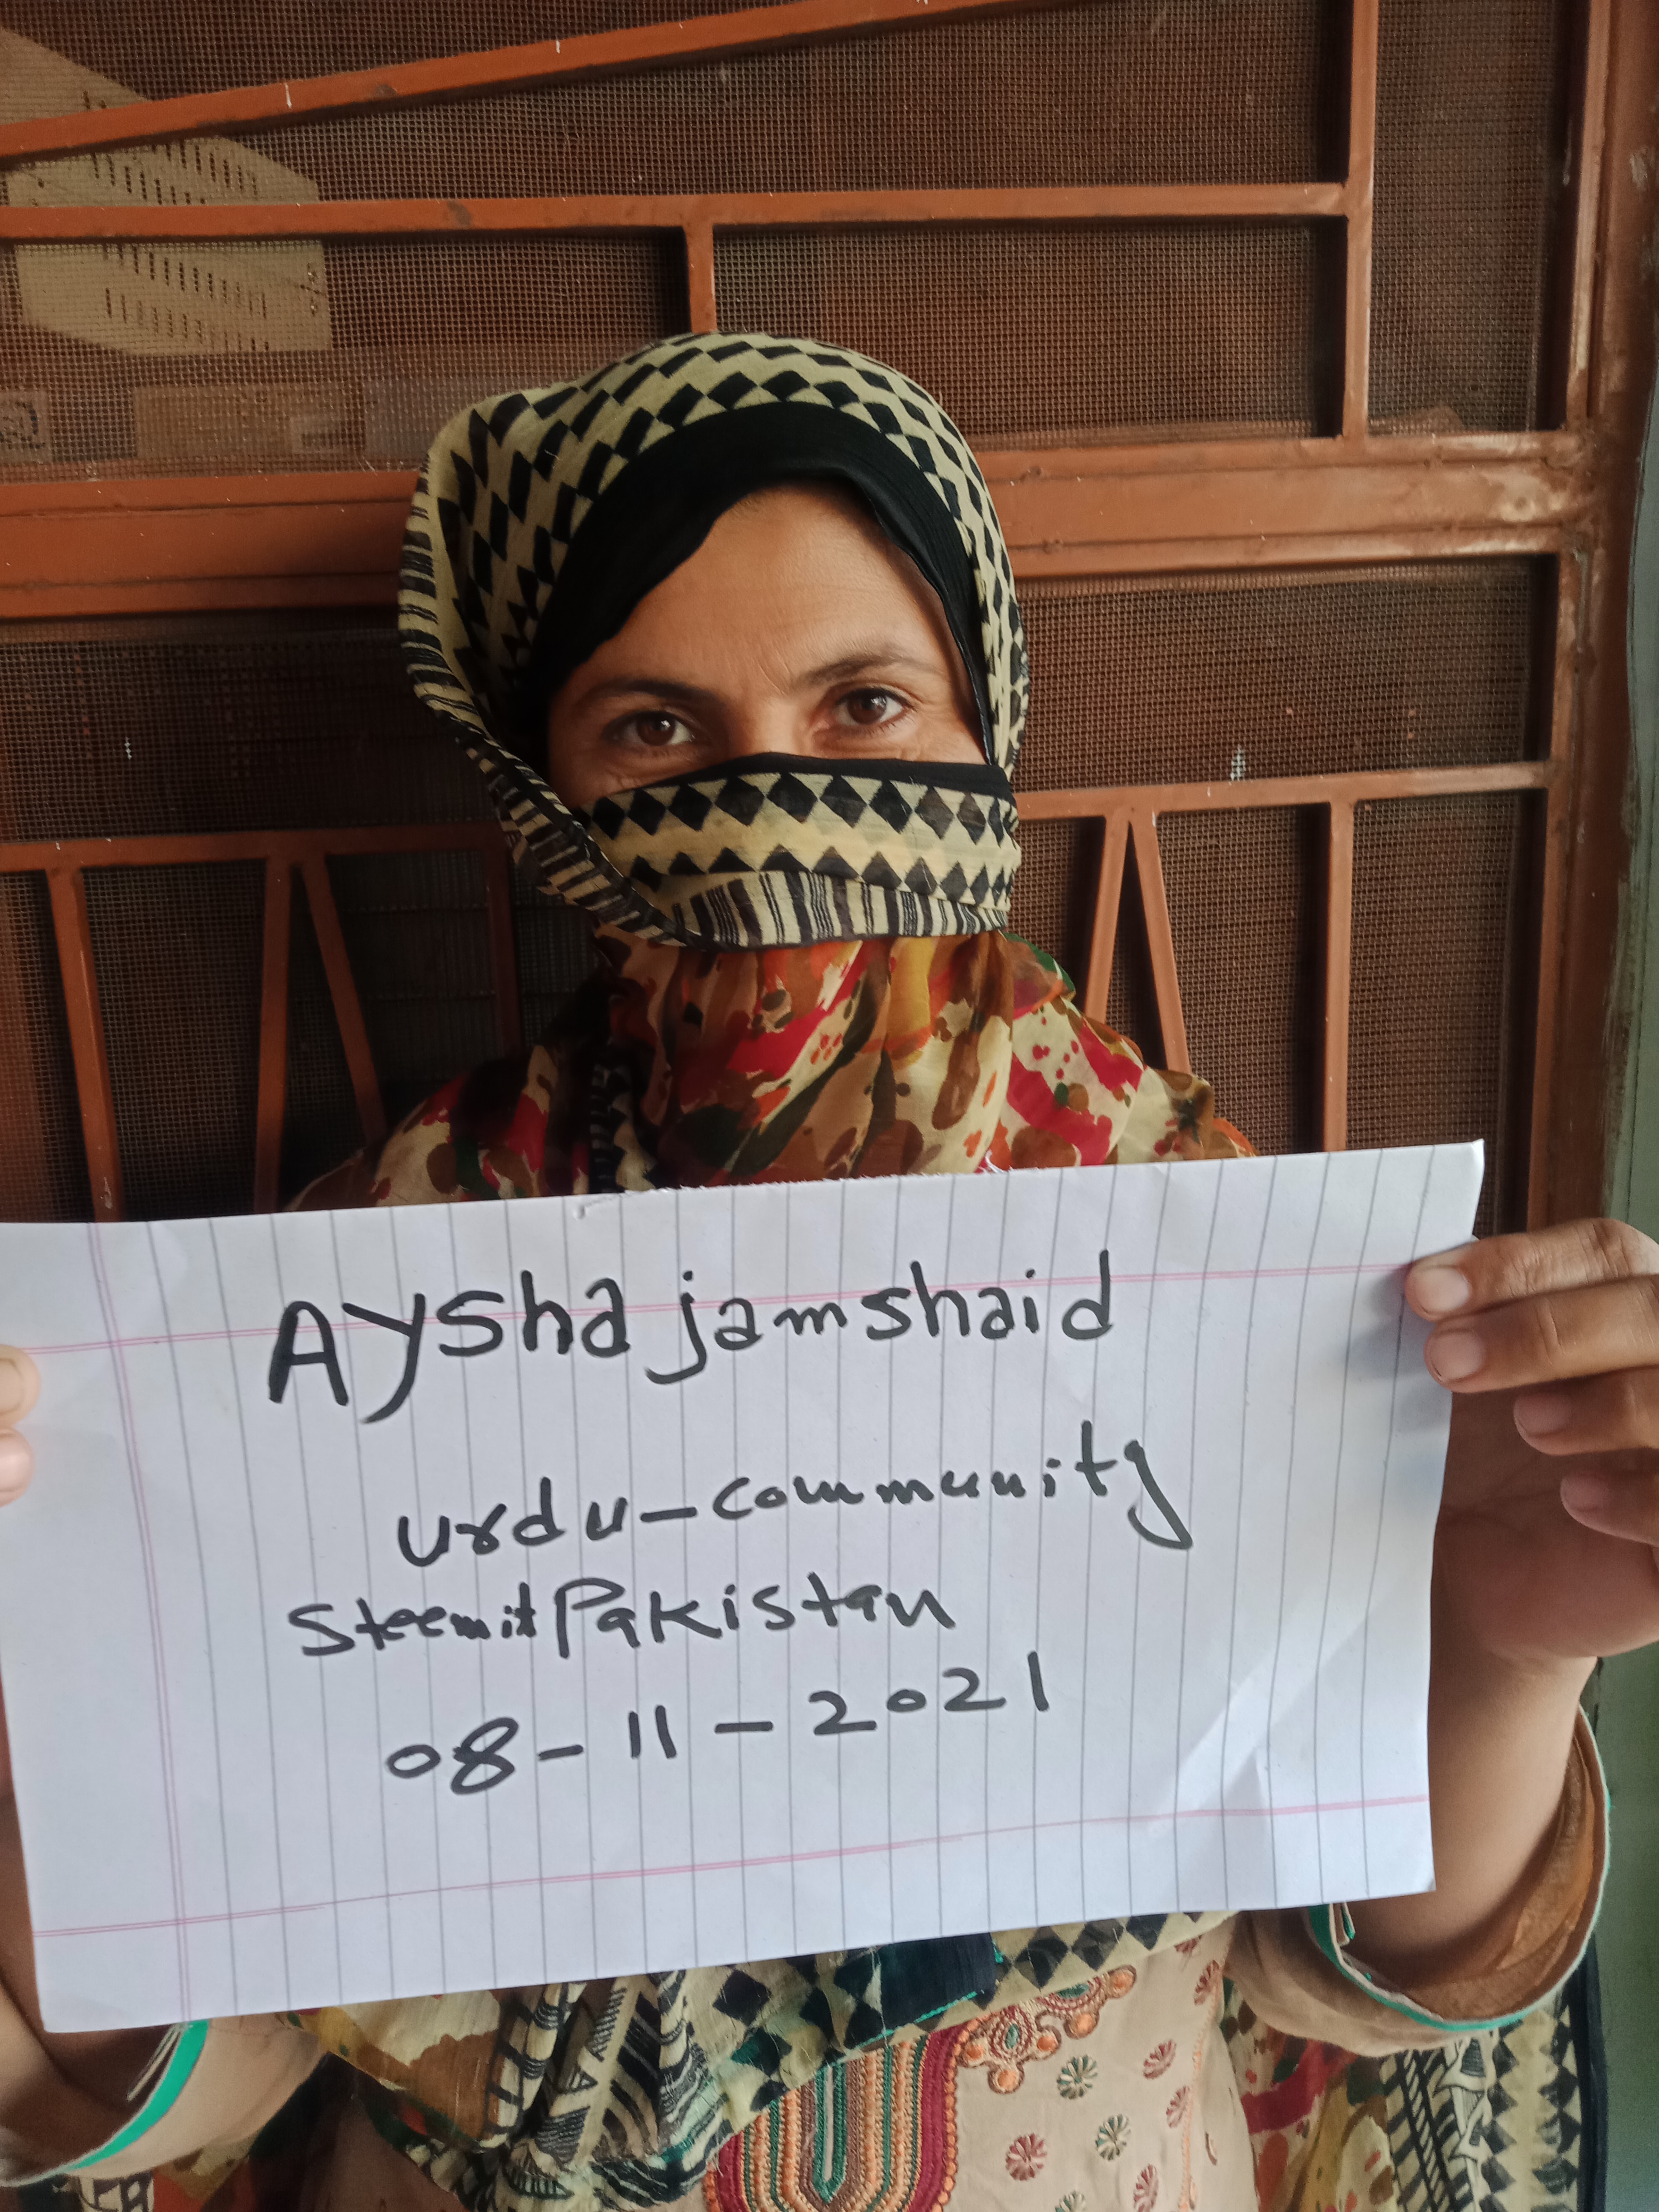 Aysha jamshaid
urdu-community
Steemit Pakistan
08-11-2021